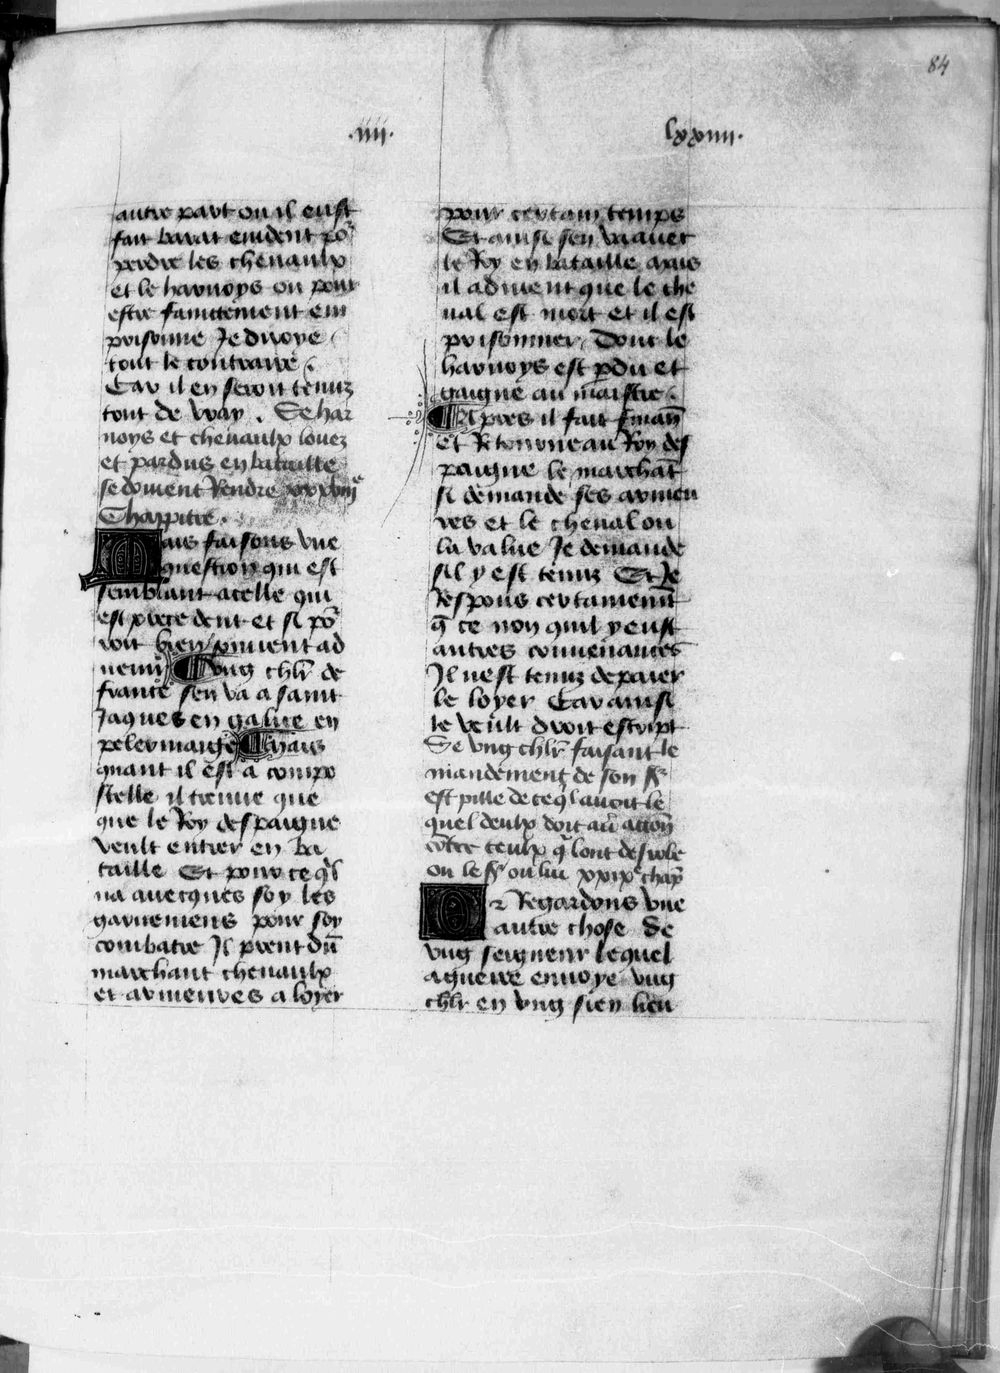 84
.iiii.
lxxiiii.
autre part ou il eust
fait barat euident po᷑
perdre les cheuaulx
et le harnoys ou pour
estre faintement em
prisonne Je diroye
tout le contraire.
Car il en seroit tenuz
tout de vray. Se har
noys et cheuaulx louez
et pardus en bataille
se doiuent Rendre
Chappitre.
Mais faisons vne
question qui est
semblant a celle qui
est precedent et si po᷑
roit bien souuent ad
uenir ¶ vng chlr de
france sen va a saint
Jaques en galice en
pelerinaige ¶ Mais
quant il est a compo
stelle il treuue que
que le Roy despaigne
veult entrer en ba
taille Et pour ce q̃l
na auecques soy les
garnemens pour soy
combatre Il prent dũ
marchant cheuaulx
et armeures a loyer
pour certain temps
Et ainsi sen va auec
le Roy en bataille mais
il aduient que le che
ual est mort et il est
prisonnier. Dont le
harnoys est pdu et
gaigne au maistre.
¶ Apres il fait finãn
et Retourne au Roy des
paigne le marchãt
si demande ses armeu
res et le cheual ou
la value Je demande
sil y est tenuz Et Je
Respons certainemẽt
q̃ ce non quil y eust
autres conuenances
Il nest tenuz de paier
le loyer Car ainsi
le veult droit escript
Se vng chlr faisant le
mandement de son sr
est pille de ce q̃l auoit le
quel deulx doit auoir action
cõtre ceulx q̃ lont desrobe
ou le sr ou lui xxxixe chap
Or Regardons vne
autre chose De
vng seigneur lequel
a guerre enuoye vng
chlr en vng sien lieu